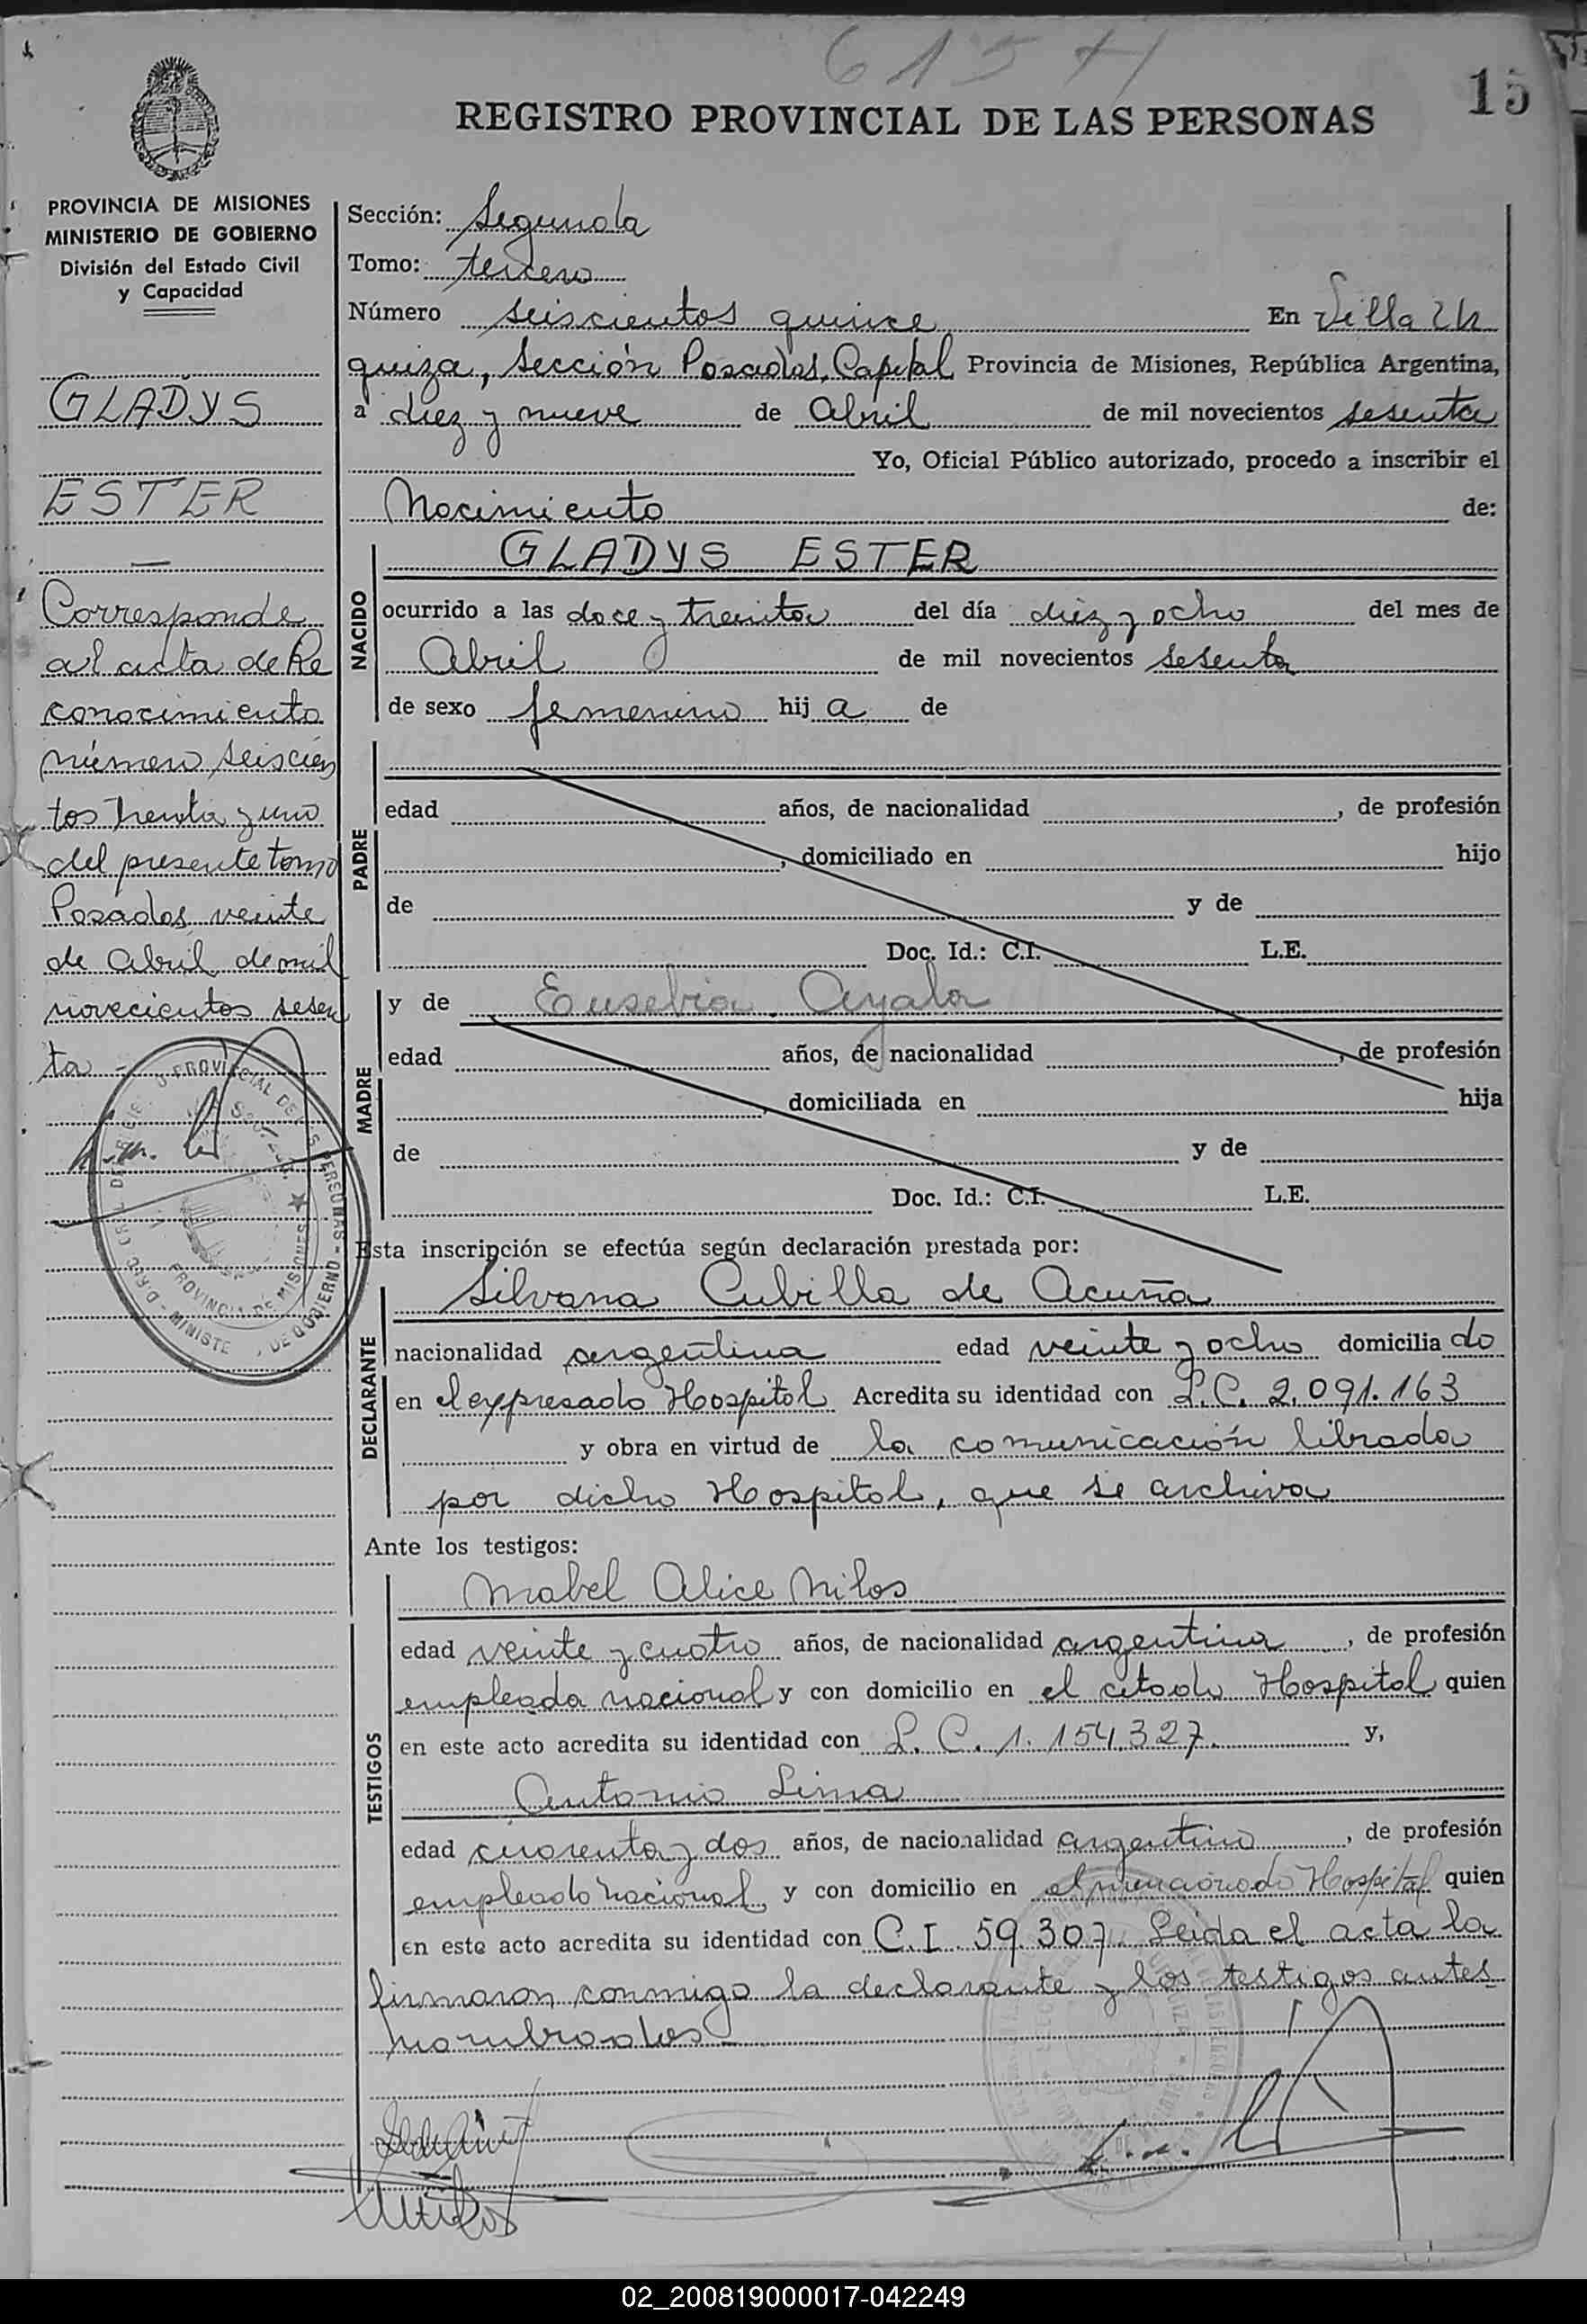 615
15
REGISTRO PROVINCIAL DE LAS PERSONAS
PROVINCIA DE MISIONES
MINISTERIO DE GOBIERNO
División del Estado Civil
y Capacidad
GLADYS
ESTER
Corresponde
al acta de Re
conocimiento
número seiscien
tos treinta y uno
del presente tomo
Posadas, veinte
de Abril de mil
novecientos sesen
ta -
Sección: Segunda
Tomo: tercero
Número seiscientos quince En Villa Ur
quiza, Sección Posadas, Capital Provincia de Misiones, República Argentina,
a diez y nueve de Abril de mil novecientos sesenta
Yo, Oficial Público autorizado, procedo a inscribir el
Nacimiento de:
NACIDO
GLADYS ESTER
ocurrido a las doce y treinta del día diez y ocho del mes de
Abril de mil novecientos sesenta
de sexo femenino hij a de
PADRE
edad años, de nacionalidad , de profesión
, domiciliado en hijo
de y de
Doc. Id.: C.I. L.E.
MADRE
y de Eusebia Ayala
edad años, de nacionalidad , de profesión
, domiciliada en hija
de y de
Doc. Id.: C.I. L.E.
Esta inscripción se efectúa según declaración prestada por:
DECLARANTE
Silvana Cubilla de Acuña
nacionalidad argentina edad veinte y ocho domicilia do
en el expresado Hospital Acredita su identidad con L.C. 2.091.163
y obra en virtud de la comunicación librada
por dicho Hospital, que se archiva
Ante los testigos:
TESTIGOS
Mabel Alice Milos
edad veinte y cuatro años, de nacionalidad argentina , de profesión
empleada nacional y con domicilio en el citado Hospital quien
en este acto acredita su identidad con L.C. 1.154.327. y,
Antonio Lima
edad cuarenta y dos años, de nacionalidad argentino , de profesión
empleado nacional y con domicilio en el mencionado Hospital quien
en este acto acredita su identidad con C.I. 59.307 Leida el acta la
firmaron conmigo la declarante y los testigos antes
nombrados
02_200819000017-042249